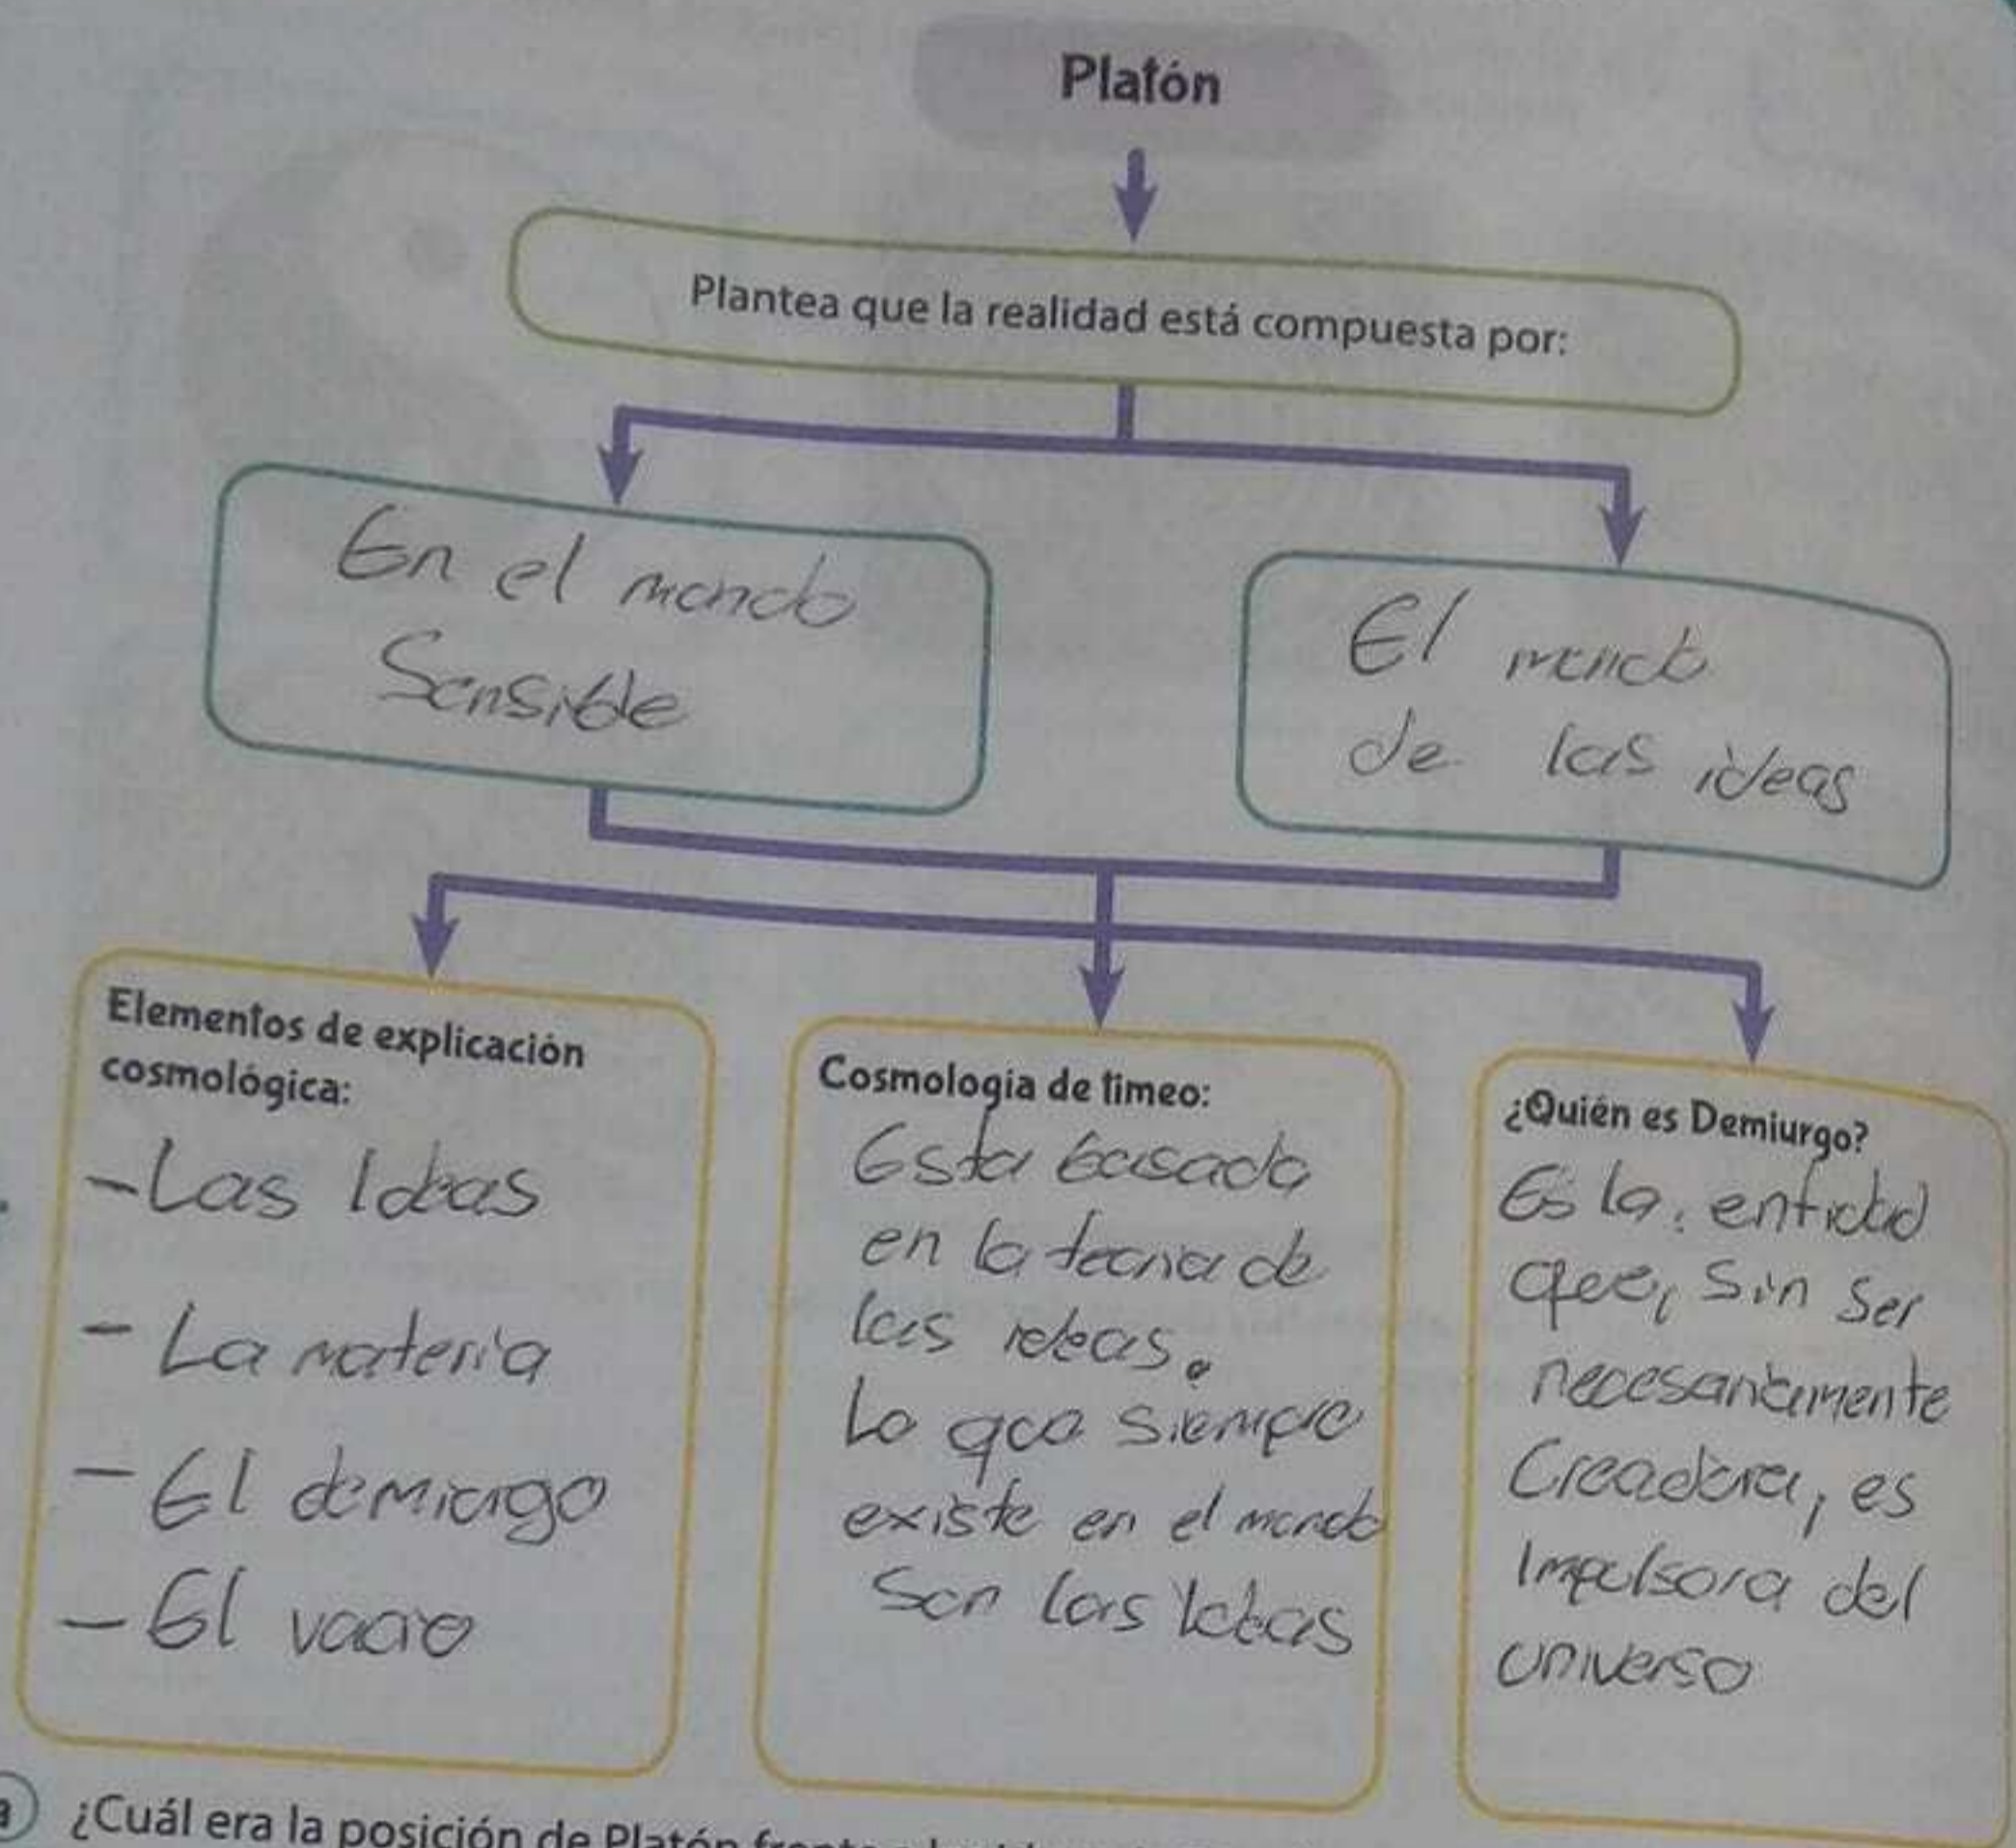 Platón
Plantea que la realidad está compuesta por:
En el mundo
Sensible
El mundo
de las ideas
Elementos de explicación
cosmológica:
- Las Ideas
- La materia
- El demiurgo
- El vacio
Cosmología de timeo:
Esta basada
en la teoria de
las ideas.
Lo que siempre
existe en el mundo
Son las ideas
¿Quién es Demiurgo?
Es la entidad
que, sin ser
necesariamente
Creadora, es
Impulsora del
universo
a) ¿Cuál era la posición de Platón